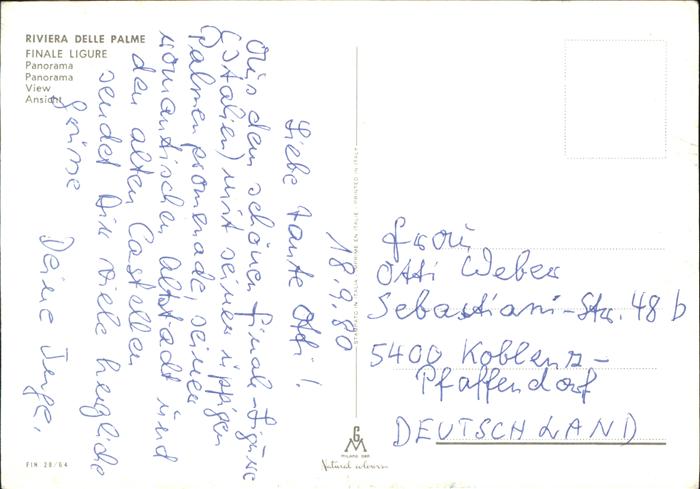 RIVIERA DELLE PALME
FINALE LIGURE
Panorama
Panorama
View
Ansicht
18.9.80
Liebe Tante Otti!
Aus dem schönen Finale-Ligure
(Italien) mit seiner üppigen
Palmenpromenade, seiner
romantischen Altstadt und
den alten Castellen
sendet Dir viele herzliche
Grüsse
Deine Inge.
Frau
Otti Weber
Sebastiani-Str. 48 b
5400 Koblenz-
Pfaffendorf
DEUTSCHLAND
PRINTED IN ITALY
IMPRIME EN ITALIE
STAMPATO IN ITALIA
GM
Natural colours
FIN 28/64